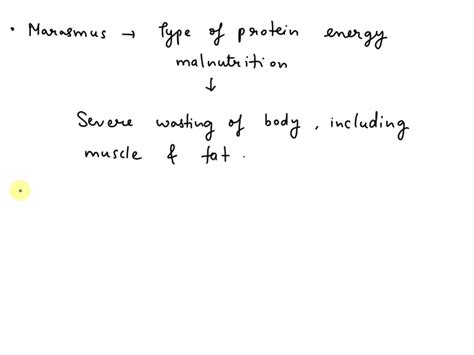 • Marasmus → Type of protein energy
malnutrition
↓
Severe wasting of body, including
muscle & fat.
•